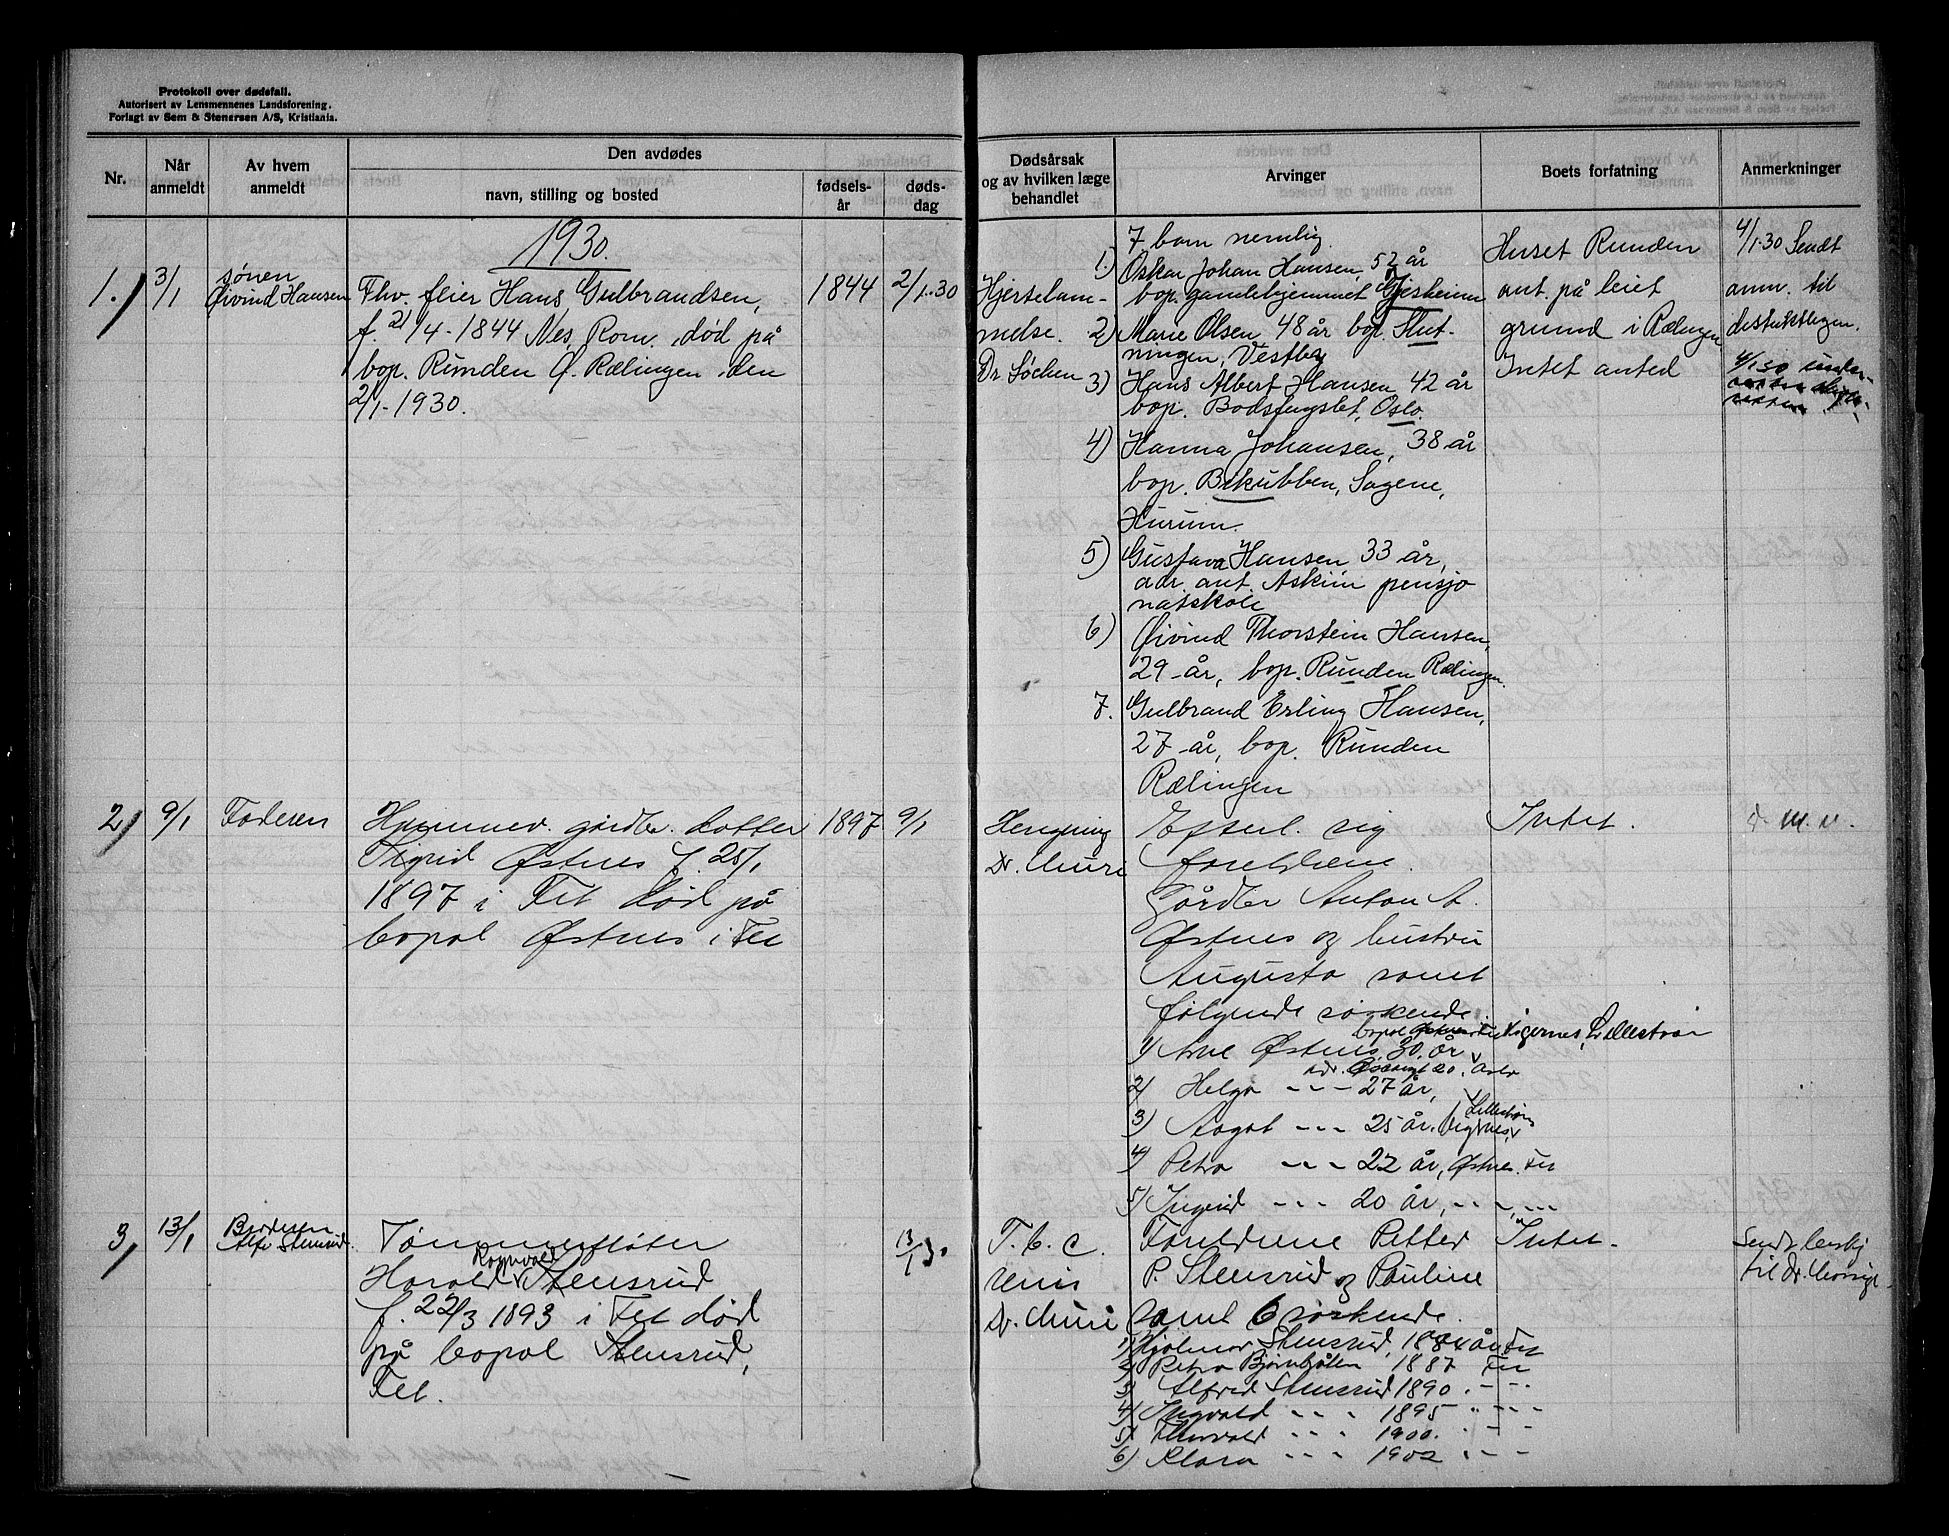 Protokoll over dødsfall.
Autorisert av Lensmennenes Landsforening.
Forlagt av Sem & Stenersen A/S, Kristiania.
Nr.
Når anmeldt
Av hvem anmeldt
Den avdødes
navn, stilling og bosted
fødselsår
dødsdag
Dødsårsak
og av hvilken læge
behandlet
Arvinger
Boets forfatning
Anmerkninger
1930.
1.
3/1
sønen
Øivind Hansen
Fhv. feier Hans Gulbrandsen,
f. 21/4-1844 Nes, Rom. død på
bop. Runden Ø. Rælingen den
2/1-1930.
1844
2/1.30
Hjertelam-
melse.
Dr Söchen
7 barn nemlig.
1.) Oskar Johan Hansen, 52 år
bop. gamlehjemmet Gjesheim
2) Marie Olsen, 48 år bop. Slut-
ningen, Vestby
3) Hans Albert Hansen 42 år
bop. Bodsfengslet, Oslo.
4) Hanna Johansen, 38 år
bop. Bikubben, Sagene,
Hurum.
5) Gustava Hansen 33 år,
adr. ant. Askim pensjo
natskole
6) Øivind Thorstein Hansen,
29 år, bop. Runden Rælingen.
7. Gulbrand Erling Hansen,
27 år, bop. Runden
Rælingen
Huset Runden
ant. på leiet
grund i Rælingen
Intet anted
4/1.30 Sendt
anm. til
distriktlegen.
4/1.30 under-
2)
9/1
Faderen
Hjemmev. gårdbr. datter
Sigrid Østnes f. 25/1
1897 i Fet død på
bopal Østnes i Fet
1897
9/1
Hengning
Dr. Muri
Efterl. sig
foreldrene
Gårdbr Anton A.
Østnes og hustru
Augusta samt
følgende søskende.
bopal Østnes Fet Vigernes, Lillestrøm
1) Arne Østnes, 30 år
20. Oslo
2) Helga --- 27 år,
Lillestrøm
3) Aagot --- 25 år. Vigernes,
4) Petra --- 22 år, Østnes. Fet
5) Ingrid --- 20 år, -- , --
Intet.
3)
13/1
Broderen
Alfr. Stensrud.
Tømmerfløter
Ragnvald
Harald Stensrud
f. 22/3 1893 i Fet død
på bopal Stensrud,
Fet.
13/1 30
T. b. c.
Dr. Muri
Foreldrene Petter
P. Stensrud og Pauline
samt 6 søskende.
1) Hjalmar Stensrud, 1884 år Fet
2) Petra Bjørnbråten 1887 Fet
3) Alfred Stensrud 1890 . - - .
4) Ingvald - - - 1895 " - - -
5) Thorvald - - - 1900. . - - -
6) Klara - - - 1902 . - -
Intet.
Sendt
til Dr.